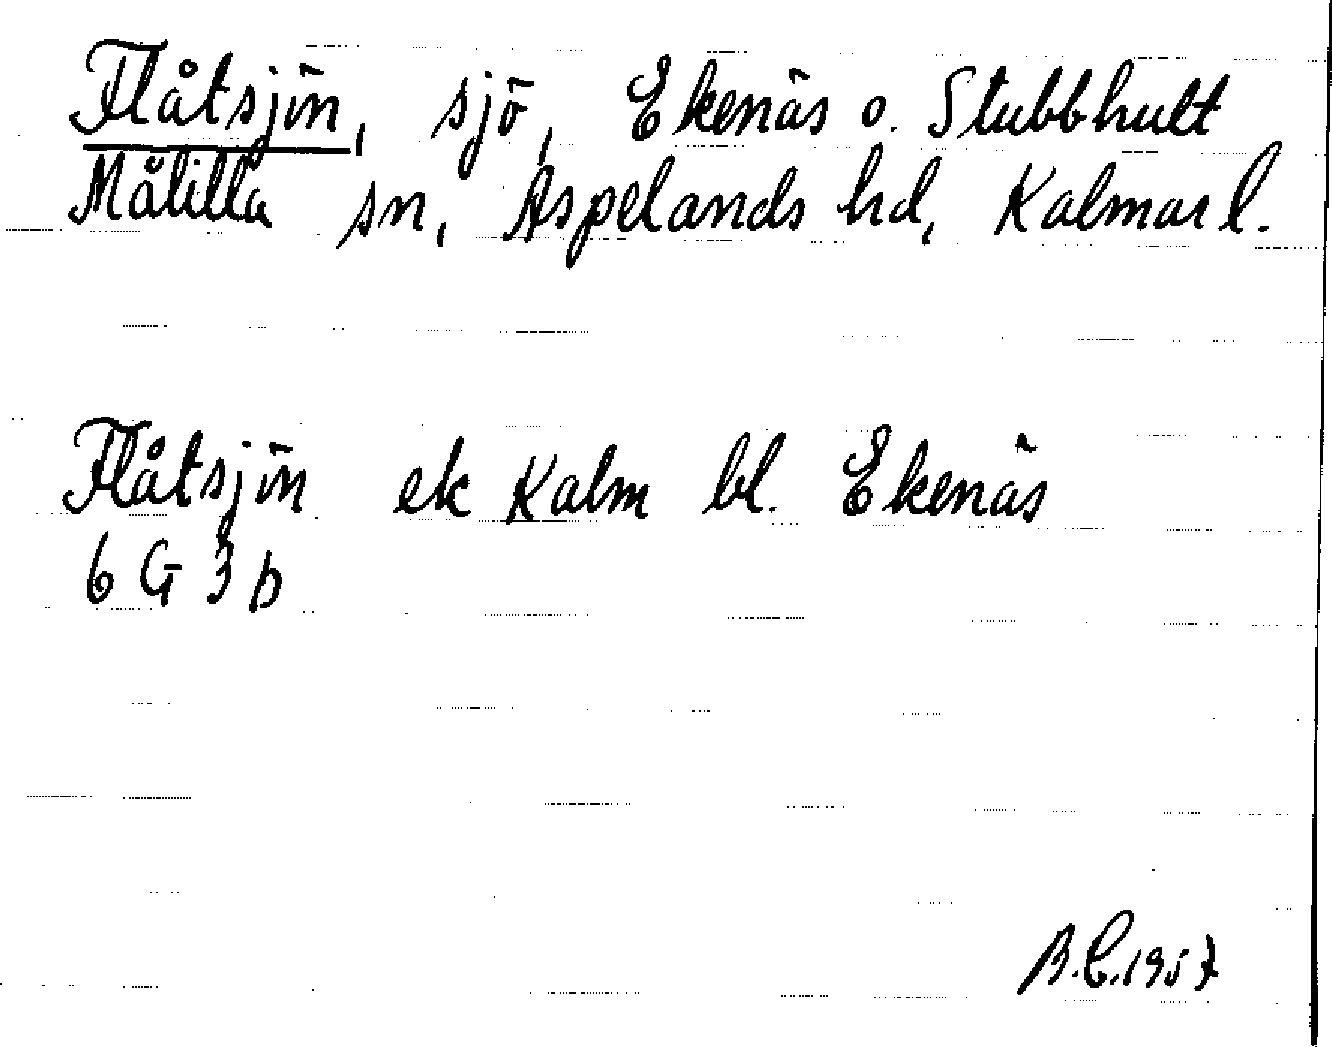 Flåtsjön, sjö, Ekenäs o. Stubbhult
Målilla sn, Aspelands hd, Kalmar l.
Flåtsjön ek Kalm bl. Ekenäs
6 G 3 b
B.C. 1957